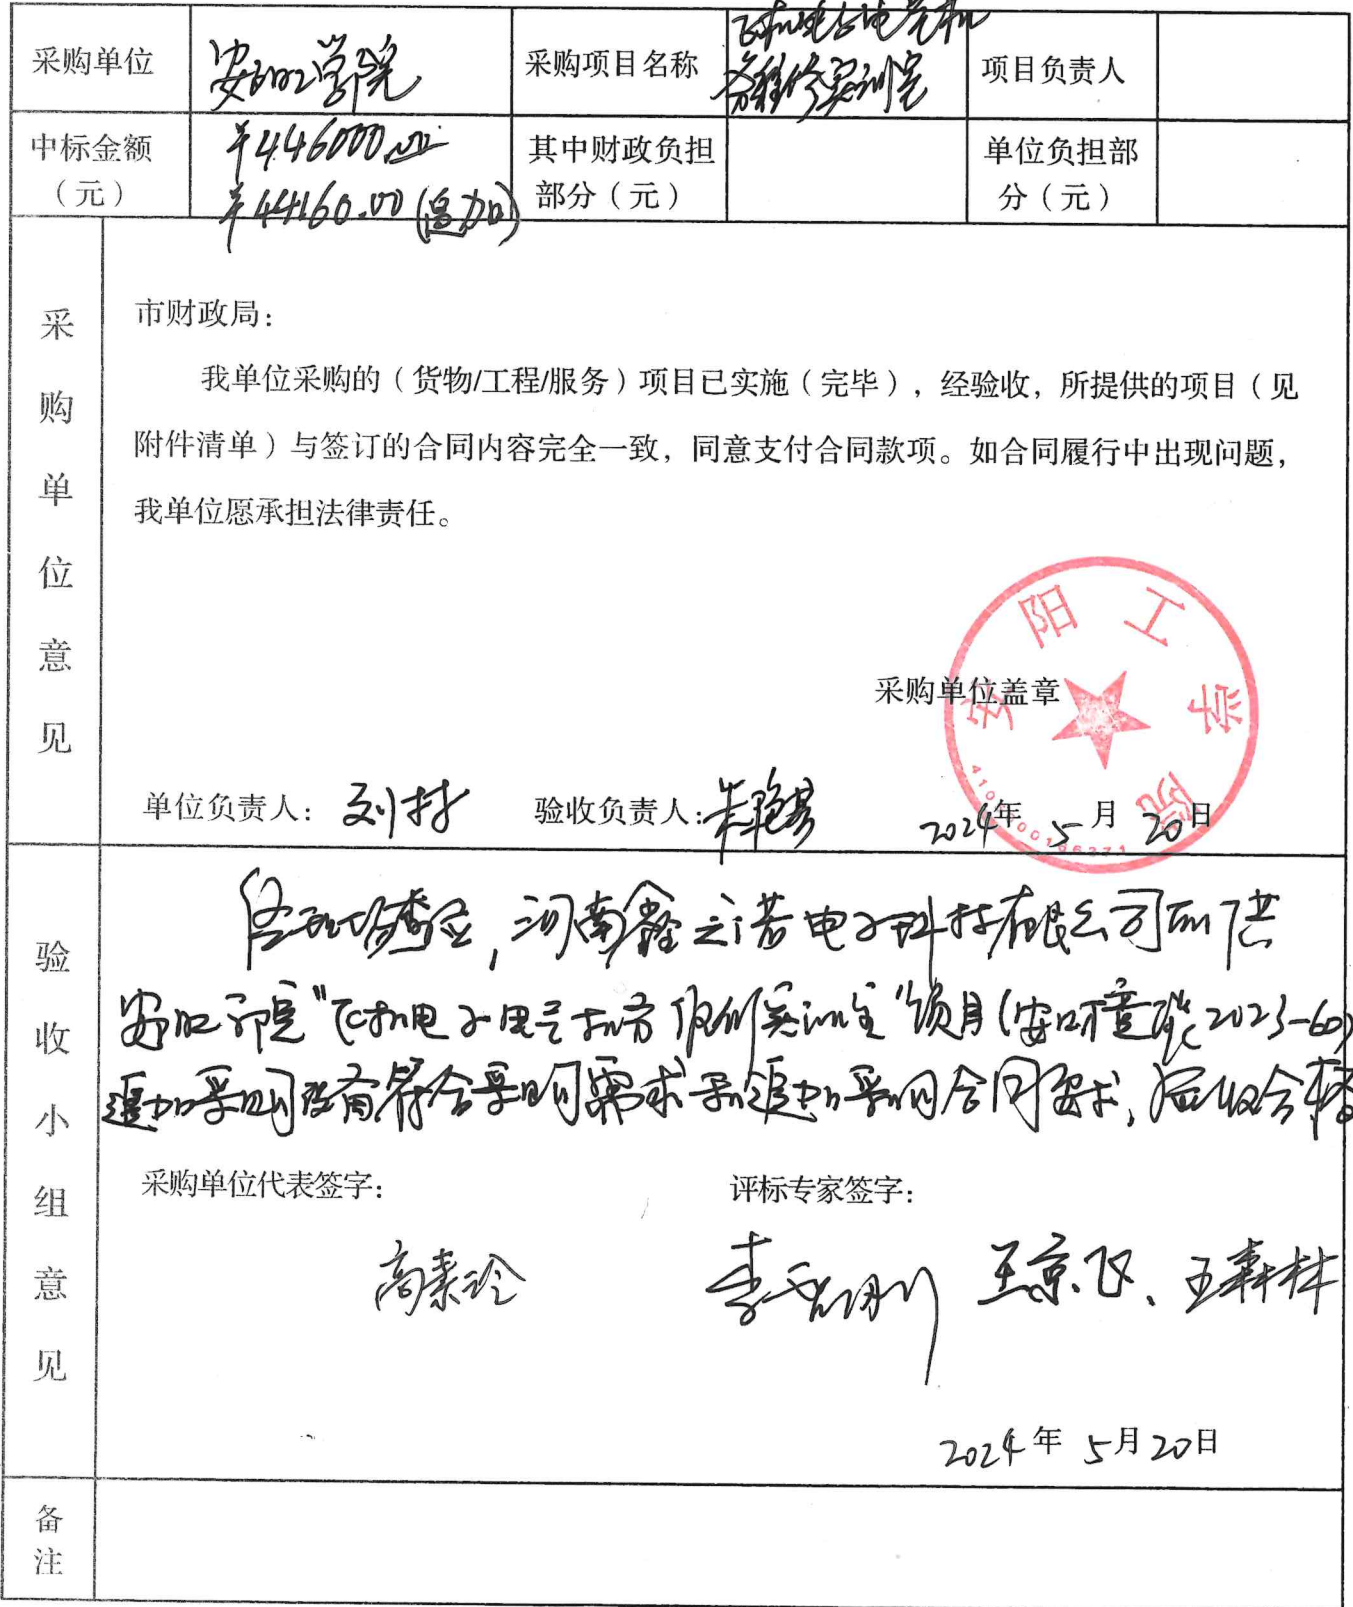 采购单位 安阳工学院 采购项目名称 飞机电子电气机务维修实训室 项目负责人
中标金额（元） ¥446000.00 其中财政负担部分（元） 单位负担部分（元）
¥44160.00（追加）
采购单位意见
市财政局：
我单位采购的（货物/工程/服务）项目已实施（完毕），经验收，所提供的项目（见
附件清单）与签订的合同内容完全一致，同意支付合同款项。如合同履行中出现问题，
我单位愿承担法律责任。
安阳工学院
采购单位盖章
单位负责人：刘村 验收负责人：朱艳 2024年5月20日
验收小组意见
经现场查验，河南鑫之诺电子科技有限公司所供
安阳工学院“飞机电子电气机务维修实训室”项目（安 2023-60）
追加采购设备符合采购需求和追加采购合同要求，验收合格
采购单位代表签字： 评标专家签字：
高素玲 李 王京飞、王森林
2024年5月20日
备注